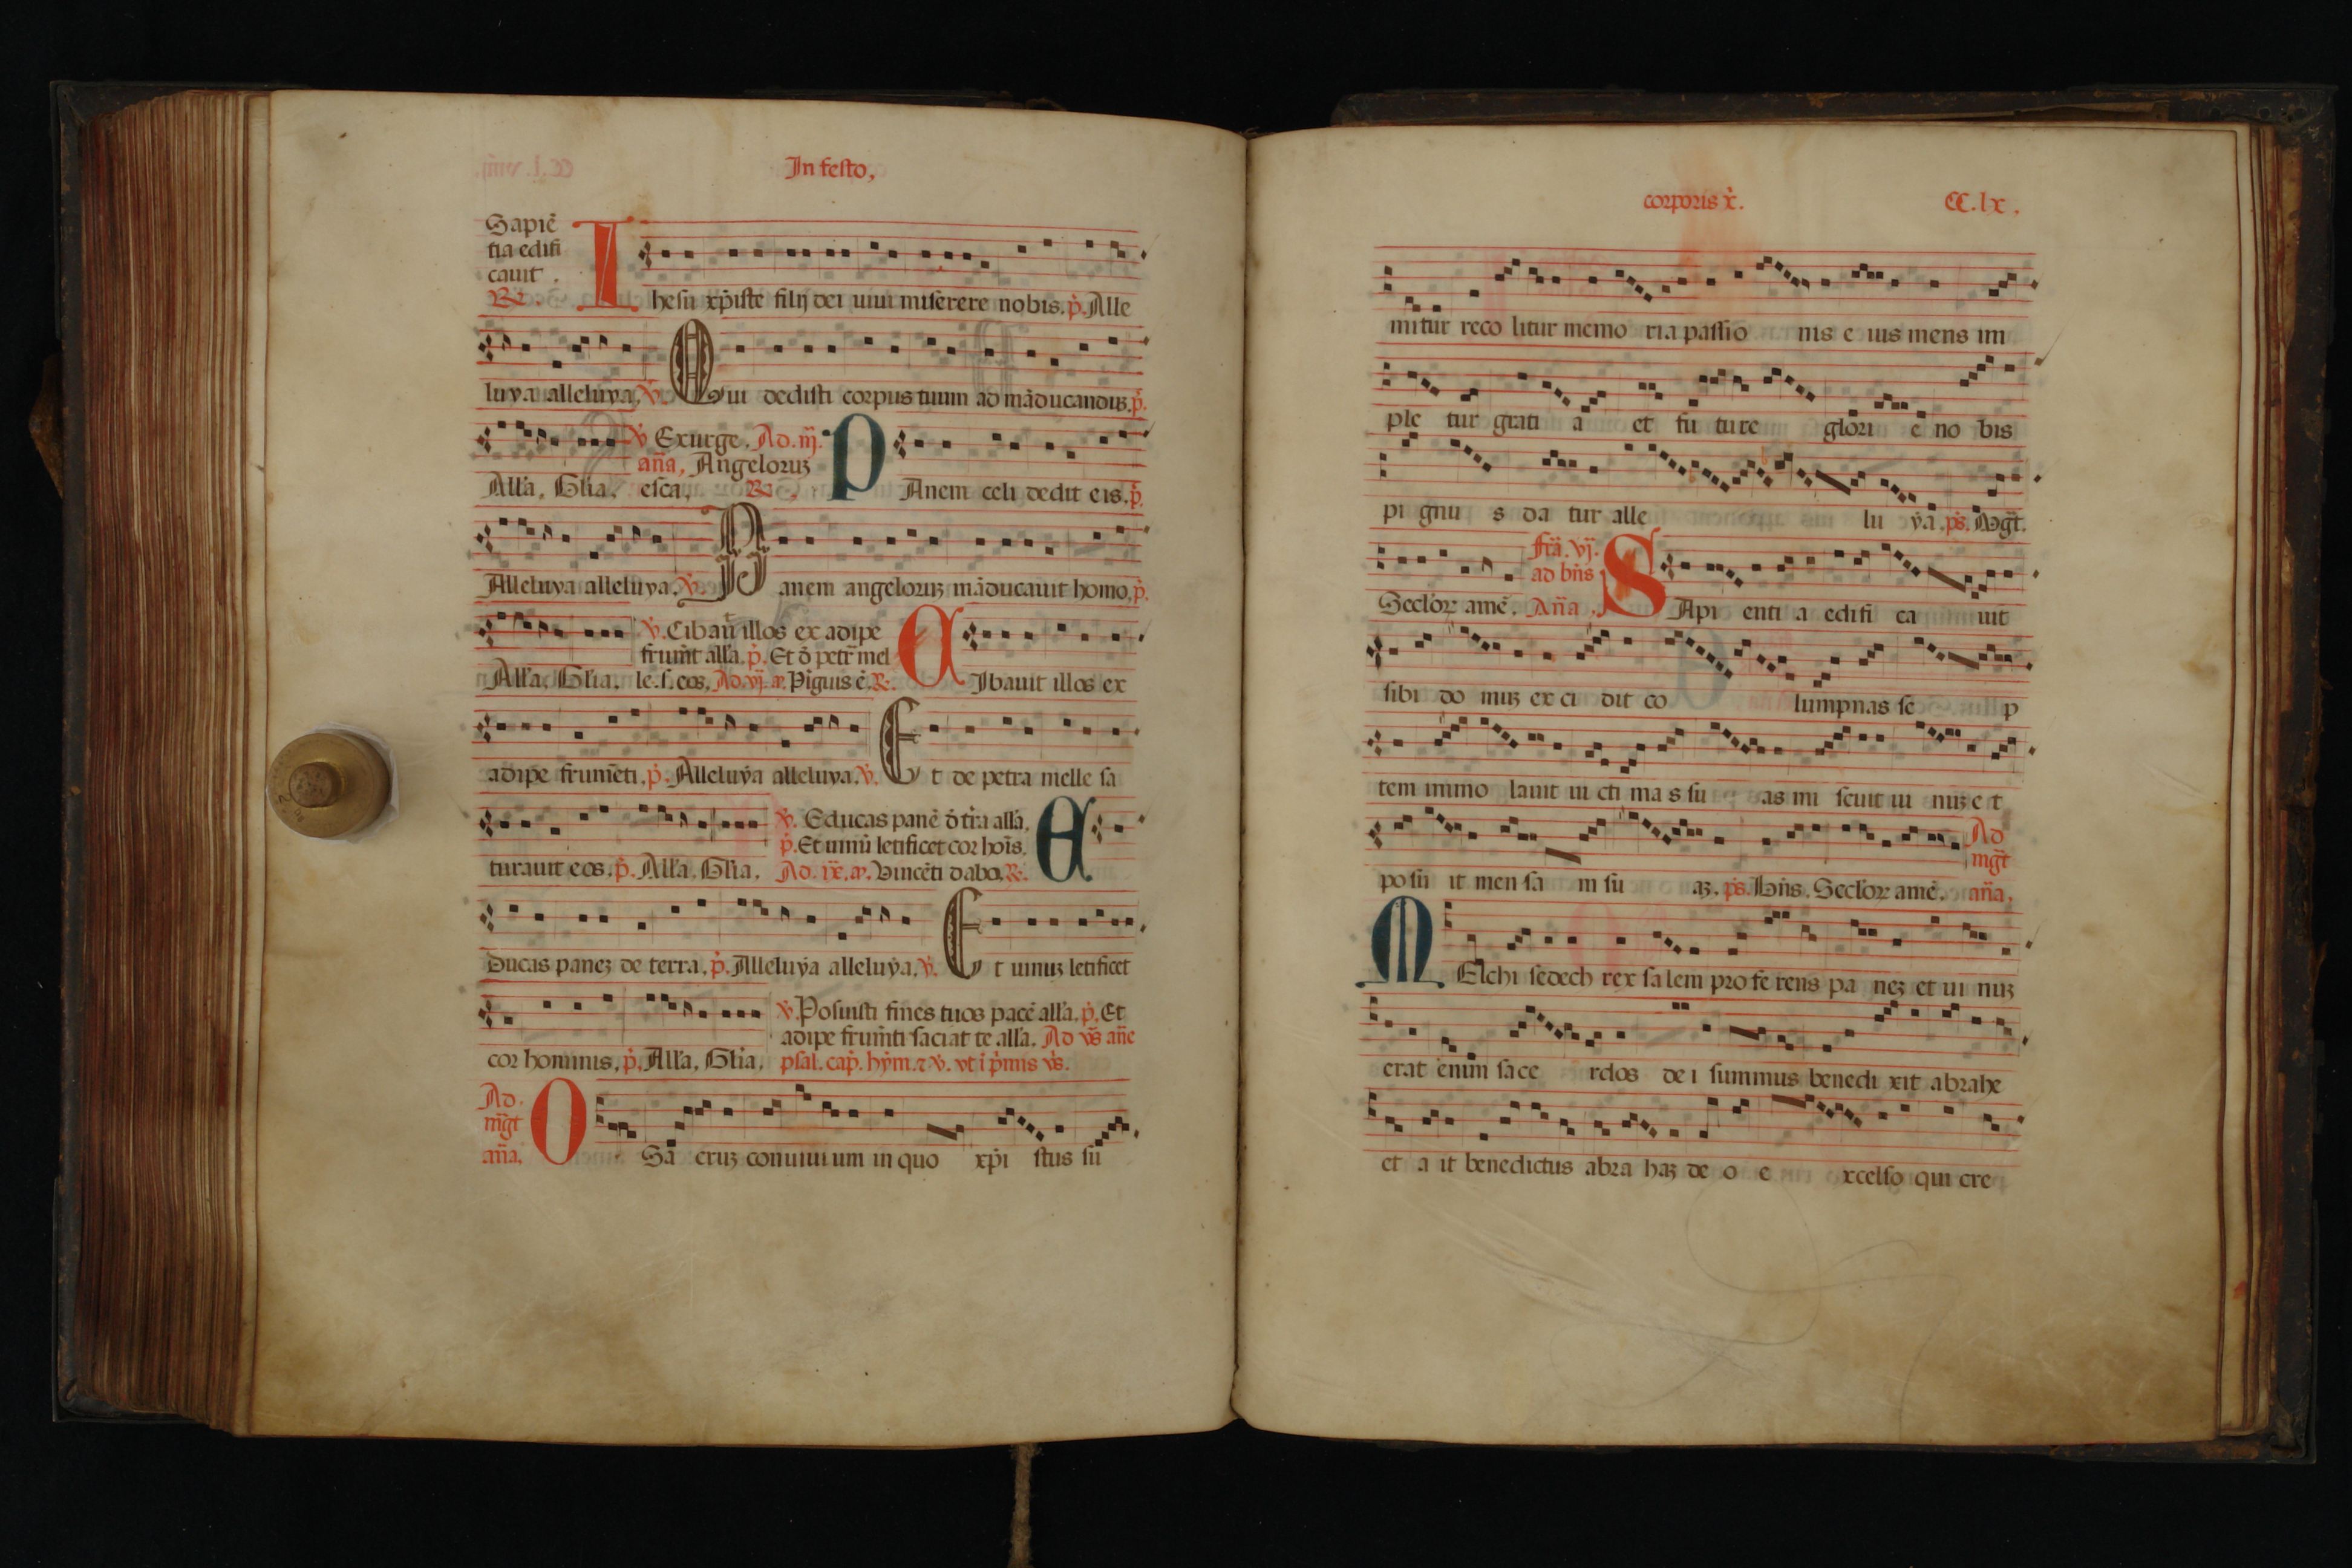 In festo,
Sapiẽ
tia edifi
cauit.
R.
Ihesu xp̃iste filij dei uiui miserere nobis. p̃. Alle
luya alleluya. ỹ. Qui dedisti corpus tuum ad mãducanduȝ. p̃.
ỹ Exurge. Ad. iij.
añа, Angeloruȝ
Alla. Glia. esca. R. PAnem celi dedit eis. p̃.
Alleluya alleluya. ỹ. Panem angeloruȝ mãducauit homo. p̃.
ỹ. Cibauit illos ex adipe
frumẽt alla. p̃. Et õ petr̃ mel
Alla. Glia. le. s. eos. Ad. vj. Piguis ẽ. R. CIbauit illos ex
adipe frumẽti. p̃. Alleluya alleluya. ỹ. Et de petra melle sa
ỹ. Educas panẽ õ tr̃a alla.
p̃. Et uinũ letificet cor hois.
turauit eos. p̃. Alla. Glia. Ad. ix. Vincẽti dabo. R. E
Ducas paneȝ de terra. p̃. Alleluya alleluya. ỹ. Et uinuȝ letificet
ỹ. Posuisti fines tuos pacẽ alla. p̃. Et
adipe frum̃ti saciat te alla. Ad ṽs añe
cor hominis. p̃. Alla. Glia. psal. cap̃. hỹm. ⁊ ỹ. vt ĩ p̃mis ṽs.
Ad.
mg̃t
añа.
O Sa cruȝ conuiui um in quo xp̃i stus su
corporis x̃.
CC.lx.
mitur reco litur memo ria passio nis e ius mens im
ple tur grati a et fu ture glori e no bis
pi gnu s da tur alle lu ya. ps̃. Mg̃t.
fr̃a. vj.
ad bñs
Seclor̃ amẽ. Añа. SApi enti a edifi ca uit
sibi do muȝ ex ci dit co lumpnas se p
tem inmo lauit ui cti ma s su as mi scuit ui nuȝ e t
Ad
mg̃t
posu it men sa m su aȝ. ps̃. Bñs. Seclor̃ amẽ. añа.
MElchi sedech rex salem pro fe rens pa neȝ et ui nuȝ
erat enim sace rdos de i summus benedi xit abrahe
et a it benedictus abra haȝ de o e xcelso qui cre